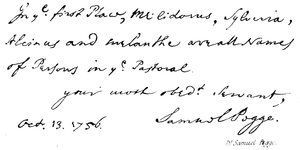 In yᵉ first Place, Melidorus, Sylvia,
Alcinus and Melanthe are all Names
of Persons in yᵉ Pastoral.
your most obedᵗ Servant,
Samuel Pegge.
Oct. 13. 1756.
Dʳ Samuel Pegge.